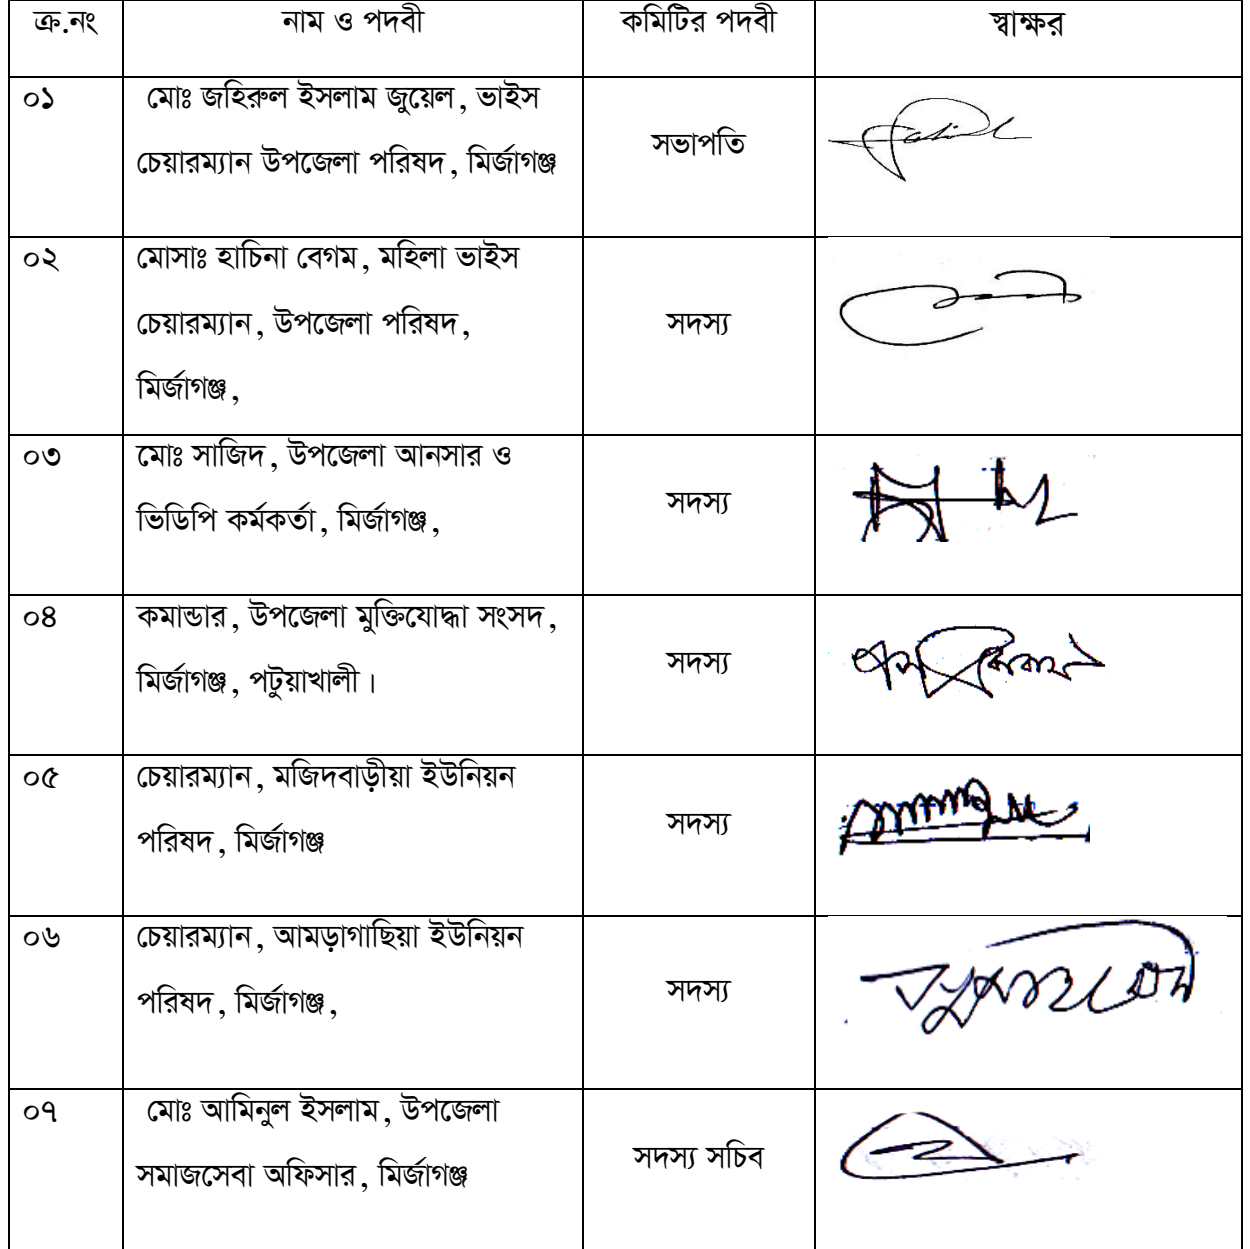 ক্র.নং নাম ও পদবী কমিটির পদবী স্বাক্ষর
০১ মোঃ জহিরুল ইসলাম জুয়েল, ভাইস
চেয়ারম্যান উপজেলা পরিষদ, মির্জাগঞ্জ
সভাপতি
০২ মোসাঃ হাচিনা বেগম, মহিলা ভাইস
চেয়ারম্যান, উপজেলা পরিষদ,
মির্জাগঞ্জ,
সদস্য
০৩ মোঃ সাজিদ, উপজেলা আনসার ও
ভিডিপি কর্মকর্তা, মির্জাগঞ্জ,
সদস্য
০৪ কমান্ডার, উপজেলা মুক্তিযোদ্ধা সংসদ,
মির্জাগঞ্জ, পটুয়াখালী।
সদস্য
০৫ চেয়ারম্যান, মজিদবাড়ীয়া ইউনিয়ন
পরিষদ, মির্জাগঞ্জ
সদস্য
০৬ চেয়ারম্যান, আমড়াগাছিয়া ইউনিয়ন
পরিষদ, মির্জাগঞ্জ,
সদস্য
০৭ মোঃ আমিনুল ইসলাম, উপজেলা
সমাজসেবা অফিসার, মির্জাগঞ্জ
সদস্য সচিব